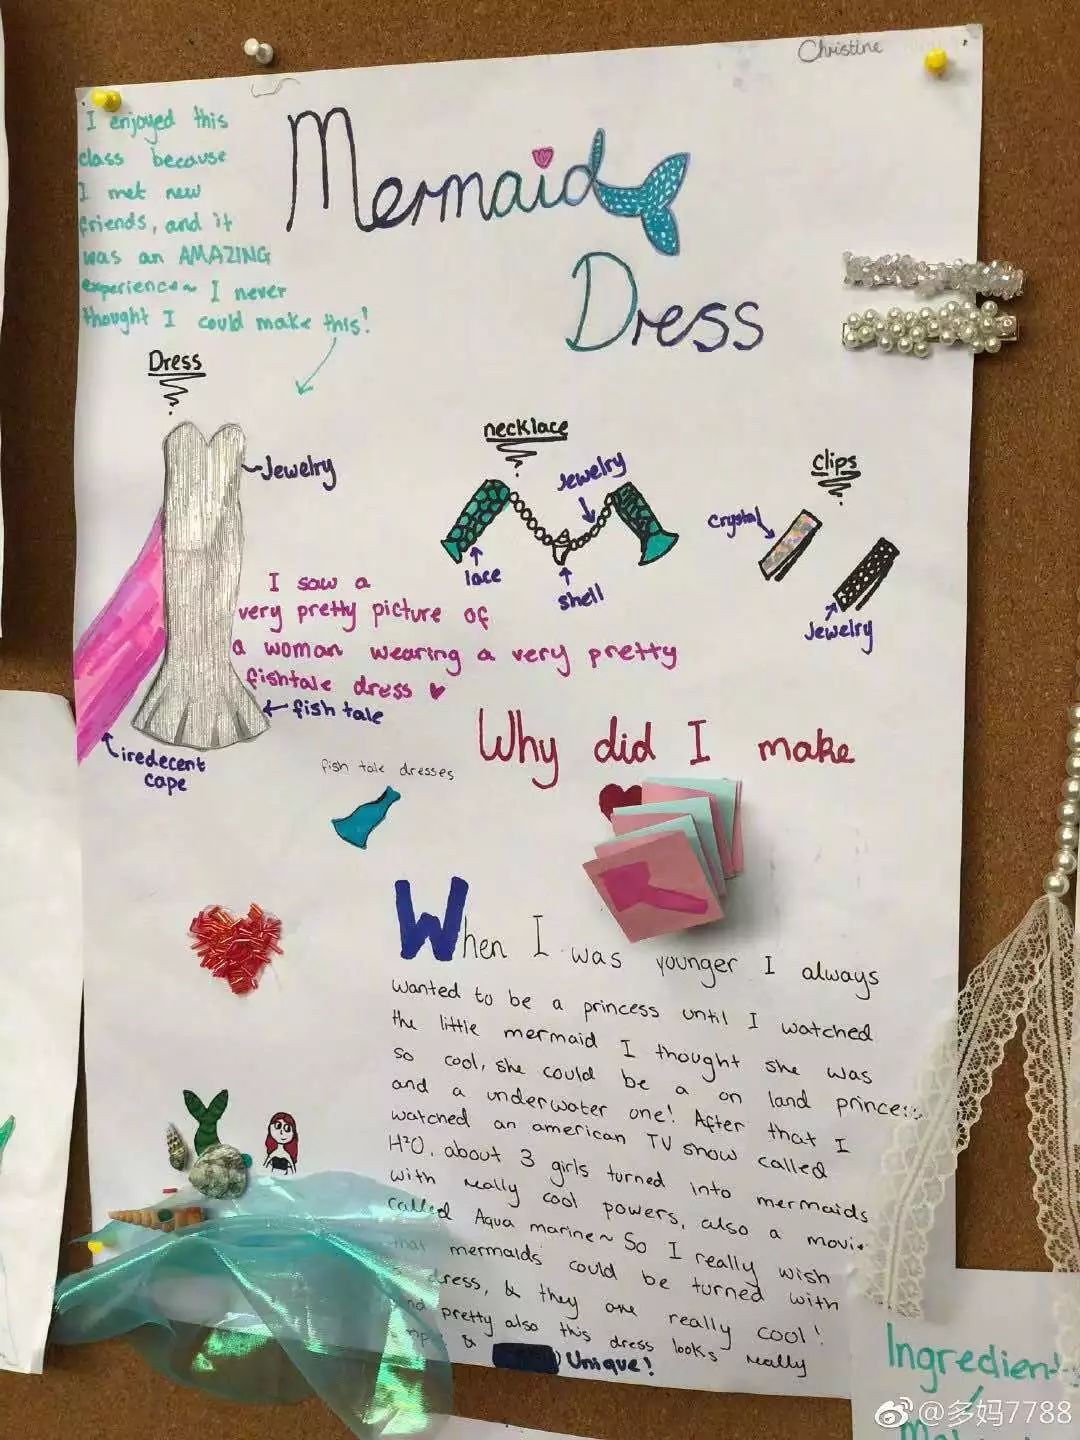 Christine
I enjoyed this
class because
I met new
friends, and it
was an AMAZING
experience~ I never
thought I could make this!
Mermaid
Dress
Dress
Jewelry
necklace
Jewelry
lace
shell
clips
crystal
Jewelry
I saw a
very pretty picture of
a woman wearing a very pretty
fishtale dress
fish tale
iredecent
cape
fish tale dresses
Why did I make
When I was younger I always
wanted to be a princess until I watched
the little mermaid I thought she was
so cool, she could be a on land princess
and a underwater one! After that I
watched an american TV show called
H²O, about 3 girls turned into mermaids
with really cool powers, also a movie
called Aqua marine~ So I really wish
that mermaids could be turned with
dress, & they are really cool!
and pretty also this dress looks really
& Unique!
Ingredient
@多妈7788